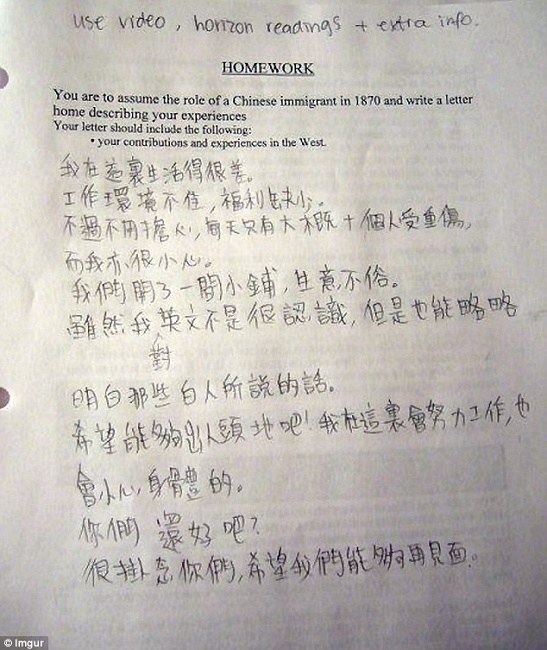 use video, horizon readings + extra info.
HOMEWORK
You are to assume the role of a Chinese immigrant in 1870 and write a letter
home describing your experiences
Your letter should include the following:
• your contributions and experiences in the West.
我在這裏生活得很差。
工作環境不佳，福利缺少。
不過不用擔心，每天只有大概十個人受重傷，
而我亦很小心。
我們開了一間小鋪，生意不俗。
雖然我英文不是很認識，但是也能略略
對
明白那些白人所說的話。
希望能夠出人頭地吧！我在這裏會努力工作，也
會小心身體的。
你們還好吧？
很掛念你們，希望我們能夠再見面。
© Imgur